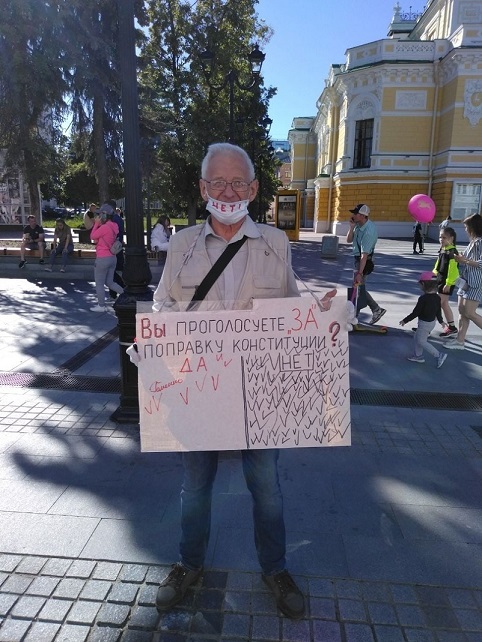 НЕТ!
ВЫ ПРОГОЛОСУЕТЕ „ЗА"
ПОПРАВКУ КОНСТИТУЦИИ?
ДА
НЕТ